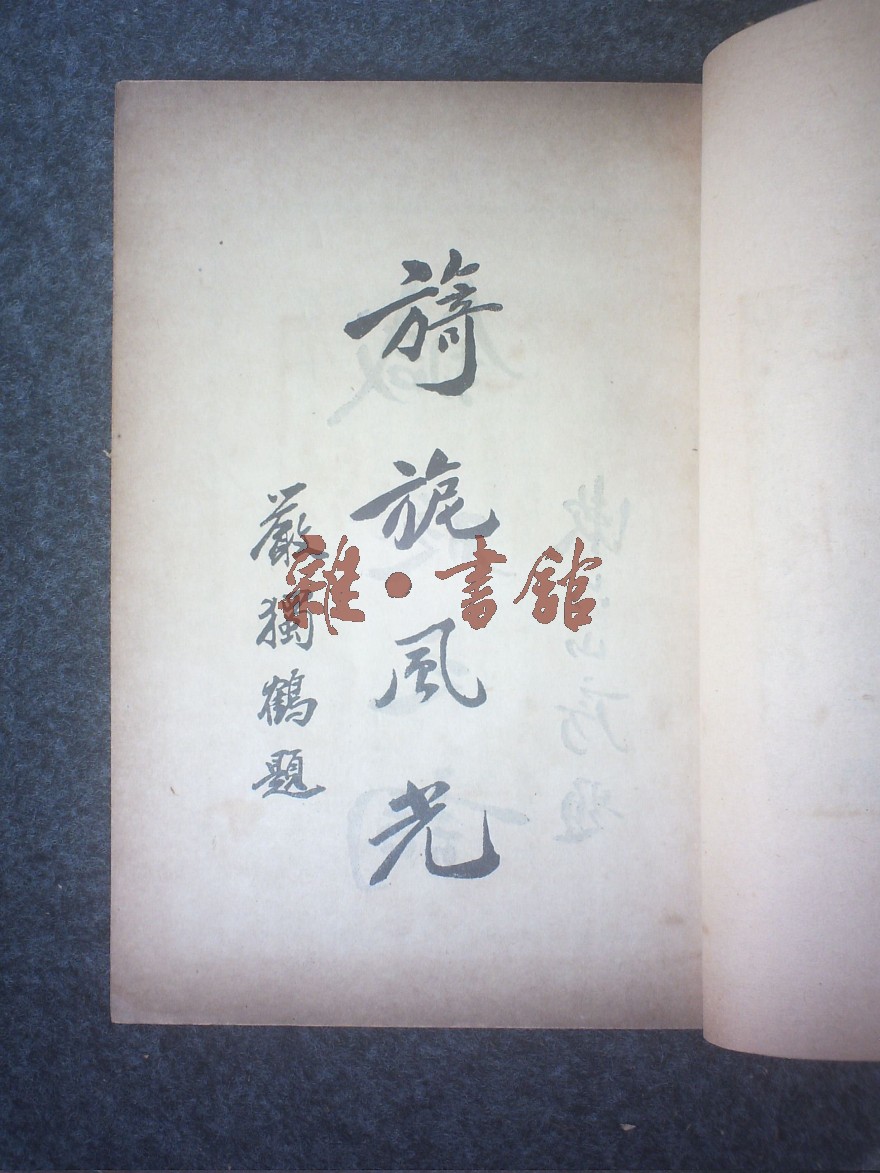 旖旎風光
嚴獨鶴題
雜·書館